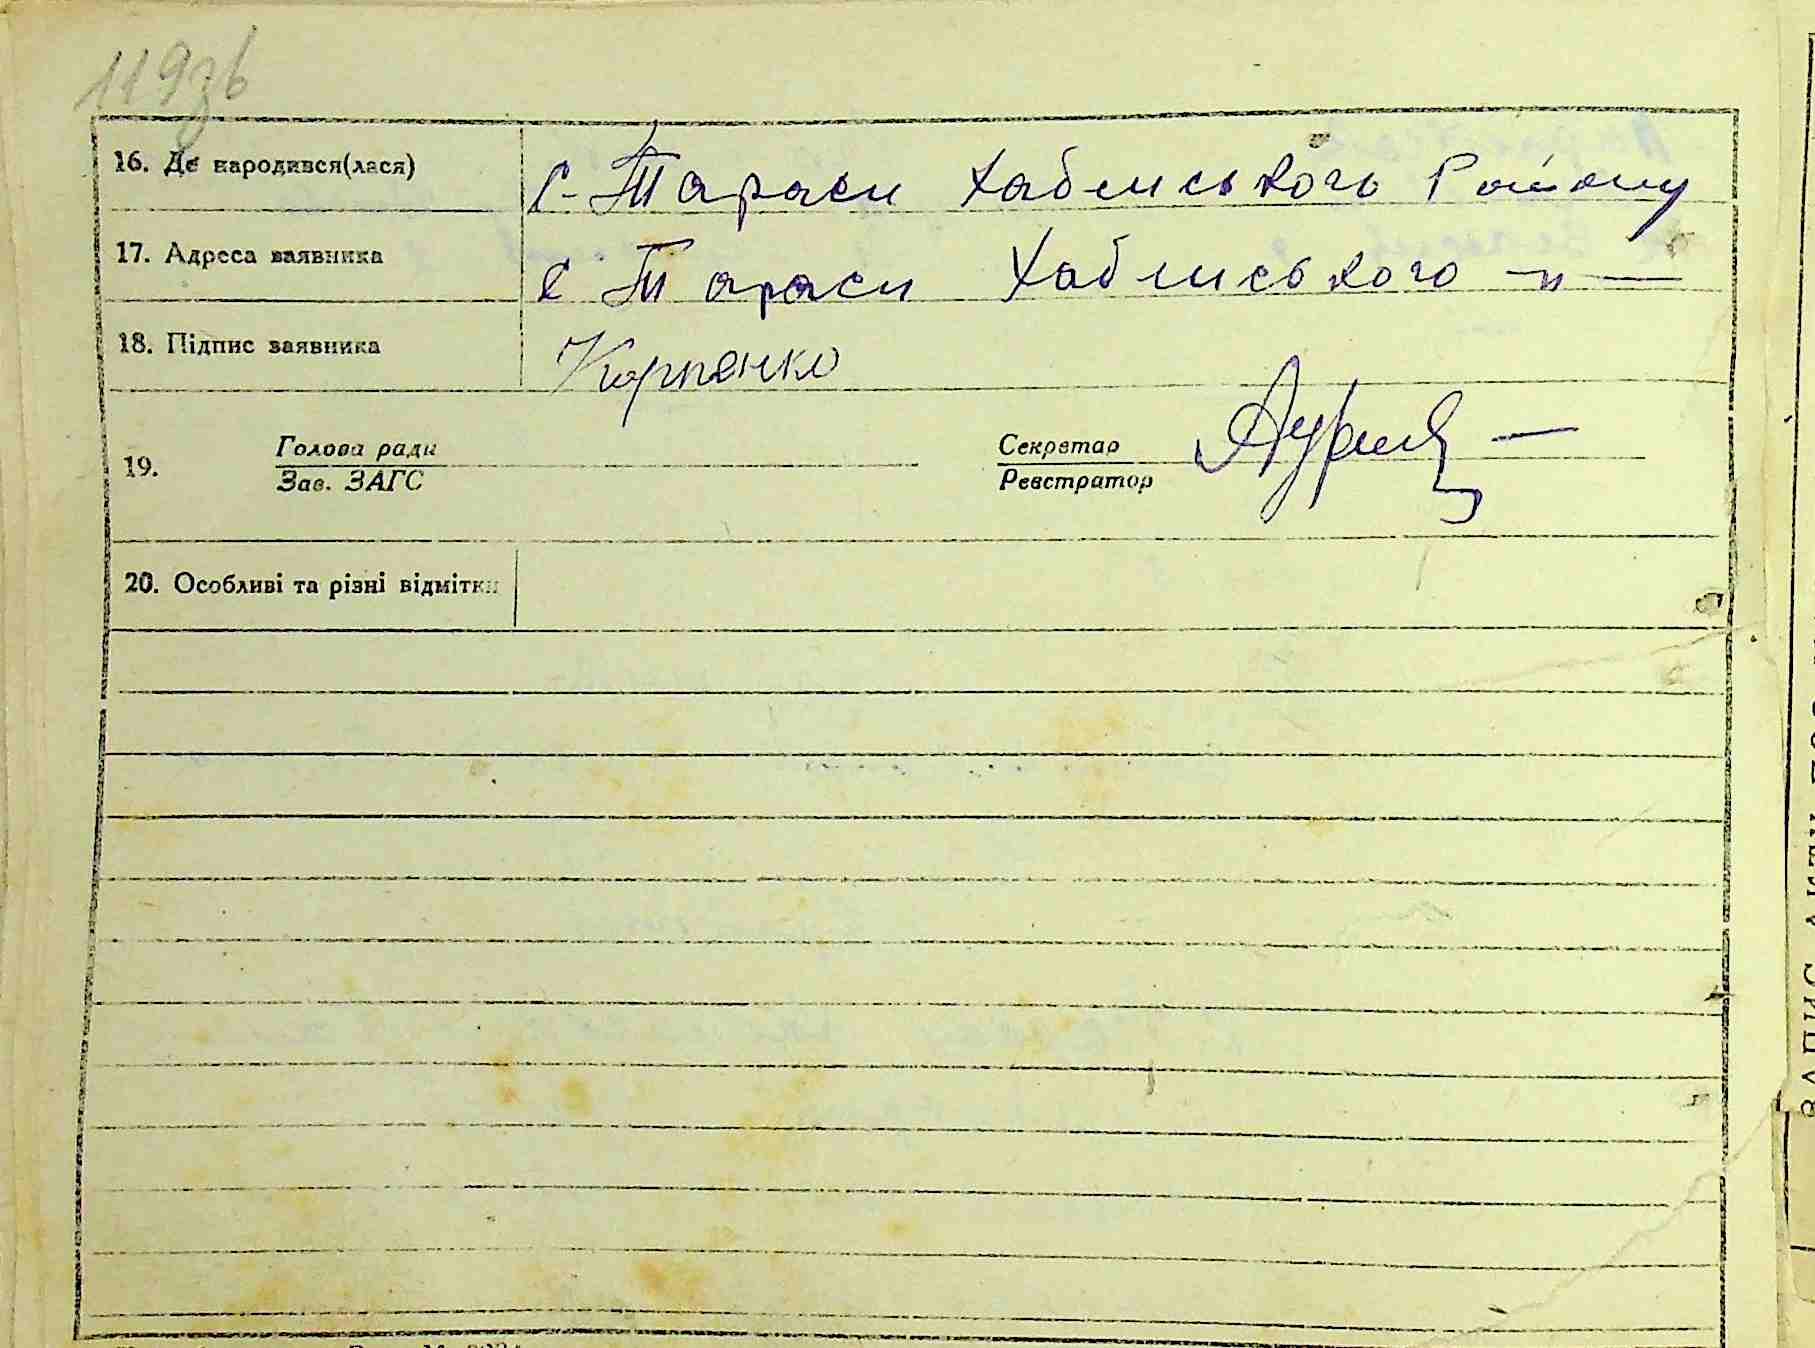 119зв
16. Де народився(лася) с. Тараси Хабенського Району
17. Адреса заявника с Тараси Хабенського -"-
18. Підпис заявника Карпенко
19. Голова ради Секретар
Зав. ЗАГС Реєстратор
20. Особливі та різні відмітки